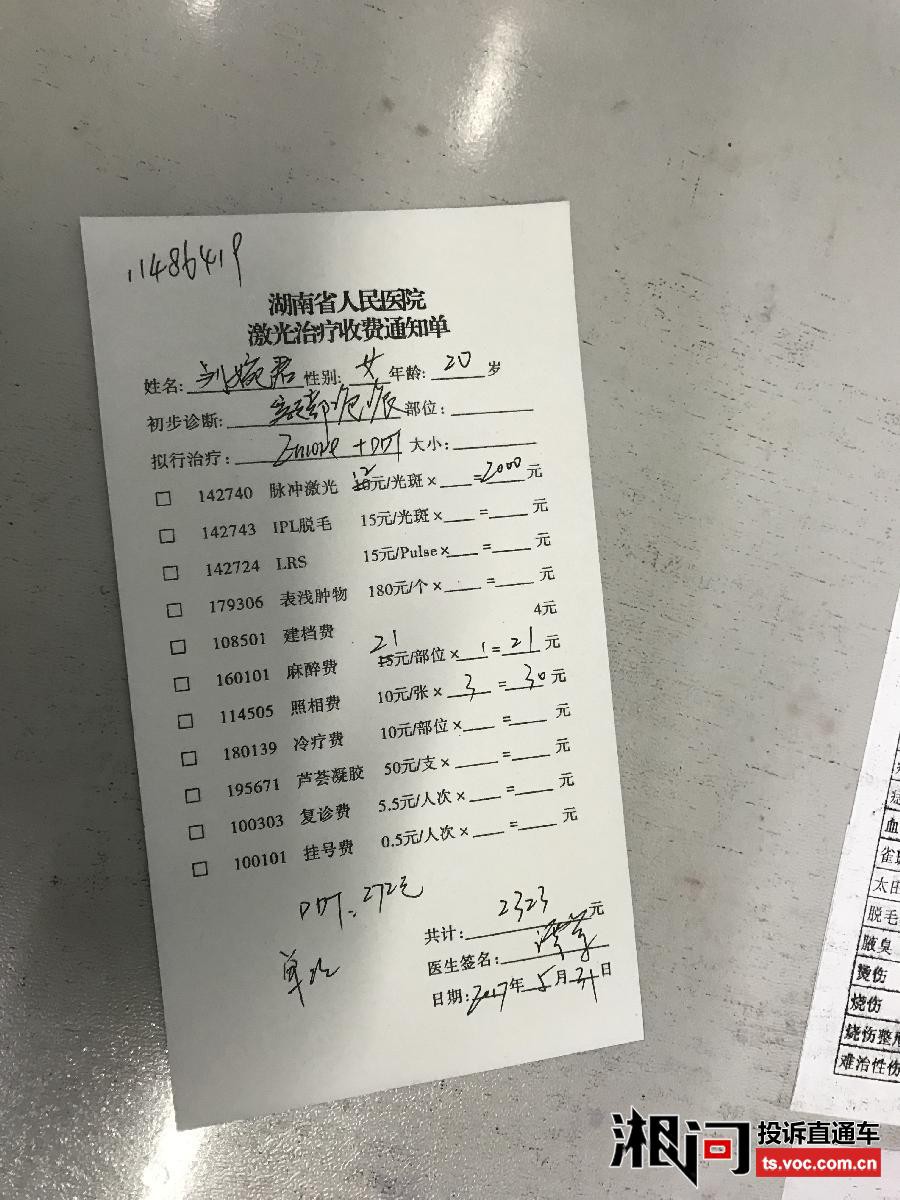 11486419
湖南省人民医院
激光治疗收费通知单
姓名: 刘婉君 性别: 女 年龄: 20 岁
初步诊断: 部疤痕 部位:
拟行治疗: + 大小:
□ 142740 脉冲激光 12元/光斑 × = 2000 元
□ 142743 IPL脱毛 15元/光斑 × = 元
□ 142724 LRS 15元/Pulse × = 元
□ 179306 表浅肿物 180元/个 × = 元
□ 108501 建档费 4元
□ 160101 麻醉费 21 15元/部位 × 1 = 21 元
□ 114505 照相费 10元/张 × 3 = 30 元
□ 180139 冷疗费 10元/部位 × = 元
□ 195671 芦荟凝胶 50元/支 × = 元
□ 100303 复诊费 5.5元/人次 × = 元
□ 100101 挂号费 0.5元/人次 × = 元
272元
共计: 2323 元
单次
医生签名:
日期: 2017 年 5 月 31 日
血
雀斑
太田
脱毛
腋臭
烫伤
烧伤
烧伤整形
难治性伤
湘问 投诉直通车
ts.voc.com.cn